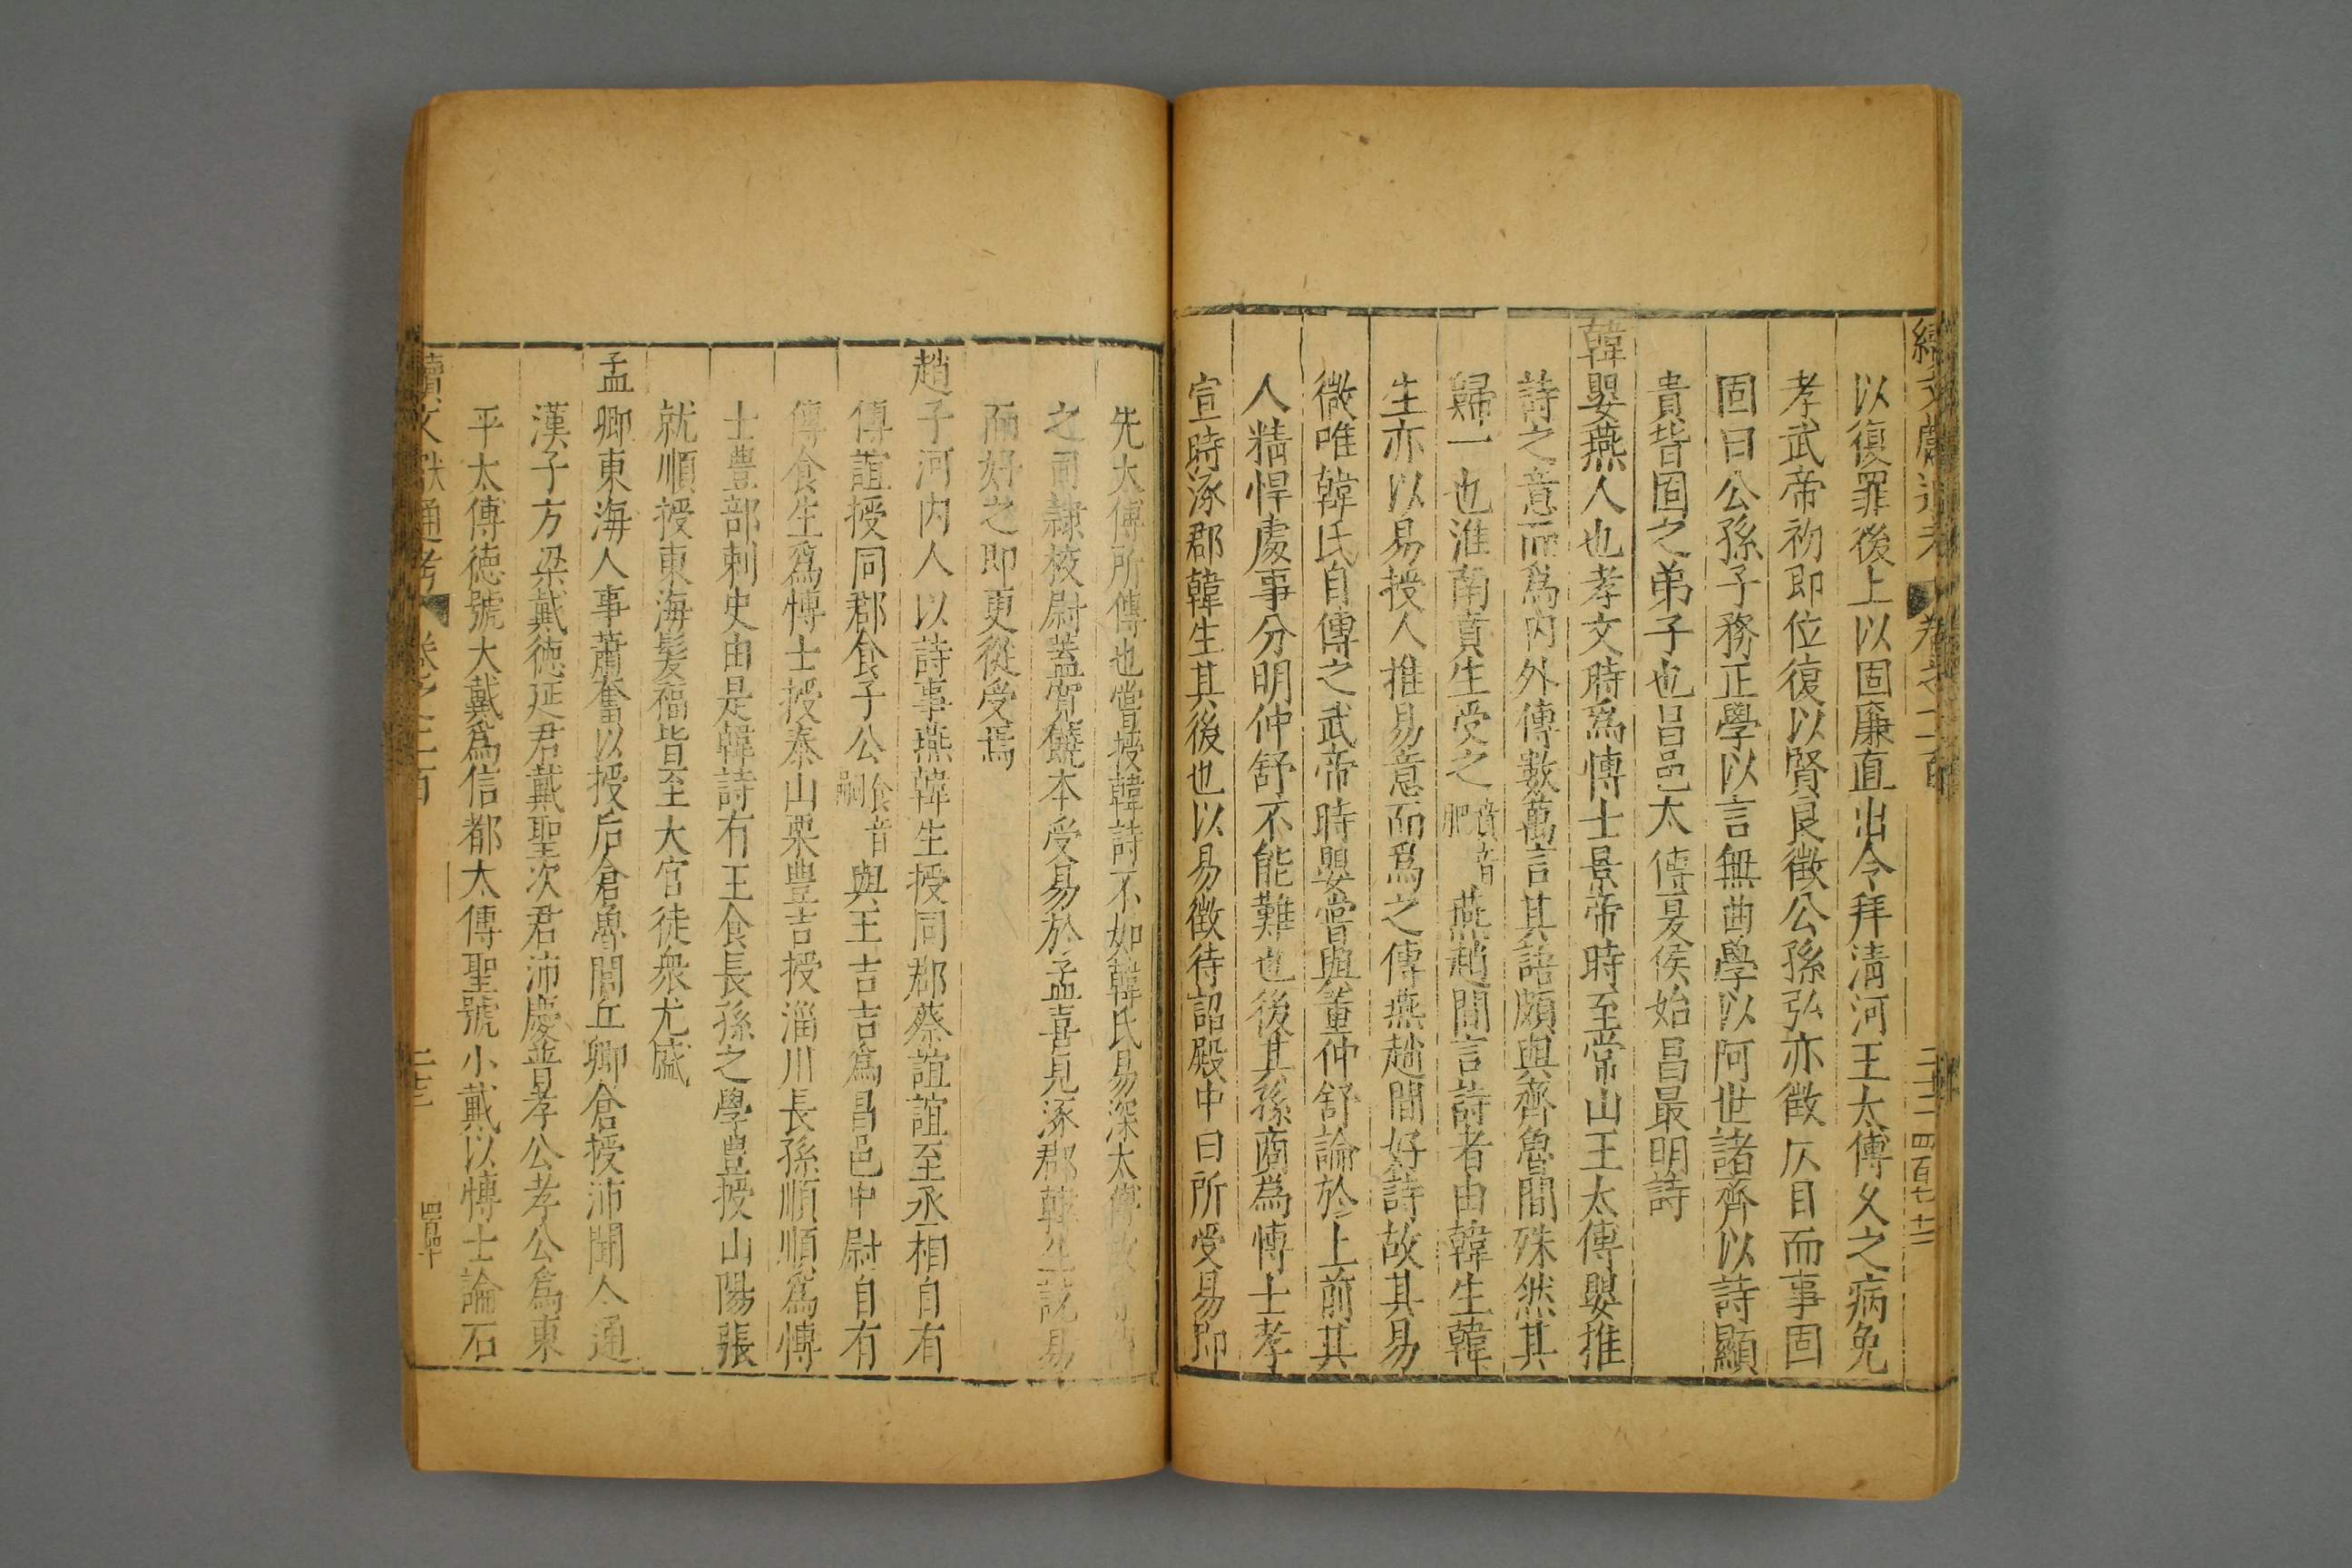 續文獻通考 卷之二百
以復罪後上以固廉直出令拜清河王太傅乂之病免
孝武帝初即位復以賢良徵公孫弘亦徵仄目而事固
固曰公孫子務正學以言無曲學以阿世諸齊以詩顯
貴皆固之弟子也昌邑太傅夏侯始昌最明詩
韓嬰燕人也孝文時爲博士景帝時至常山王太傅嬰推
詩之意而爲內外傳數萬言其語頗與齊魯間殊然其
歸一也淮南賁生受之賁音肥燕趙間言詩者由韓生韓
生亦以易授人推易意而爲之傳燕趙間好詩故其易
微唯韓氏自傳之武帝時嬰嘗與董仲舒論於上前其
人精悍處事分明仲舒不能難也後其孫商爲博士孝
宣時涿郡韓生其後也以易徵待詔殿中曰所受易即
先太傅所傳也嘗授韓詩不如韓氏易深太傅故
之司隸校尉蓋寬饒本受易於孟喜見涿郡韓生說易
而好之即更從受焉
趙子河內人以詩事燕韓生授同郡蔡誼誼至丞相自有
傳誼授同郡食子公食音嗣與王吉吉爲昌邑中尉自有
傳食生爲博士授泰山栗豐吉授淄川長孫順順爲博
士豐部刺史由是韓詩有王食長孫之學豐授山陽張
就順授東海髪福皆至大官徒衆尤盛
孟卿東海人事蕭奮以授后倉魯閭丘卿倉授沛聞人通
漢子方梁戴德延君戴聖次君沛慶普孝公孝公爲東
平太傅德號大戴爲信都太傅聖號小戴以博士論石
續文獻通考 卷之二百